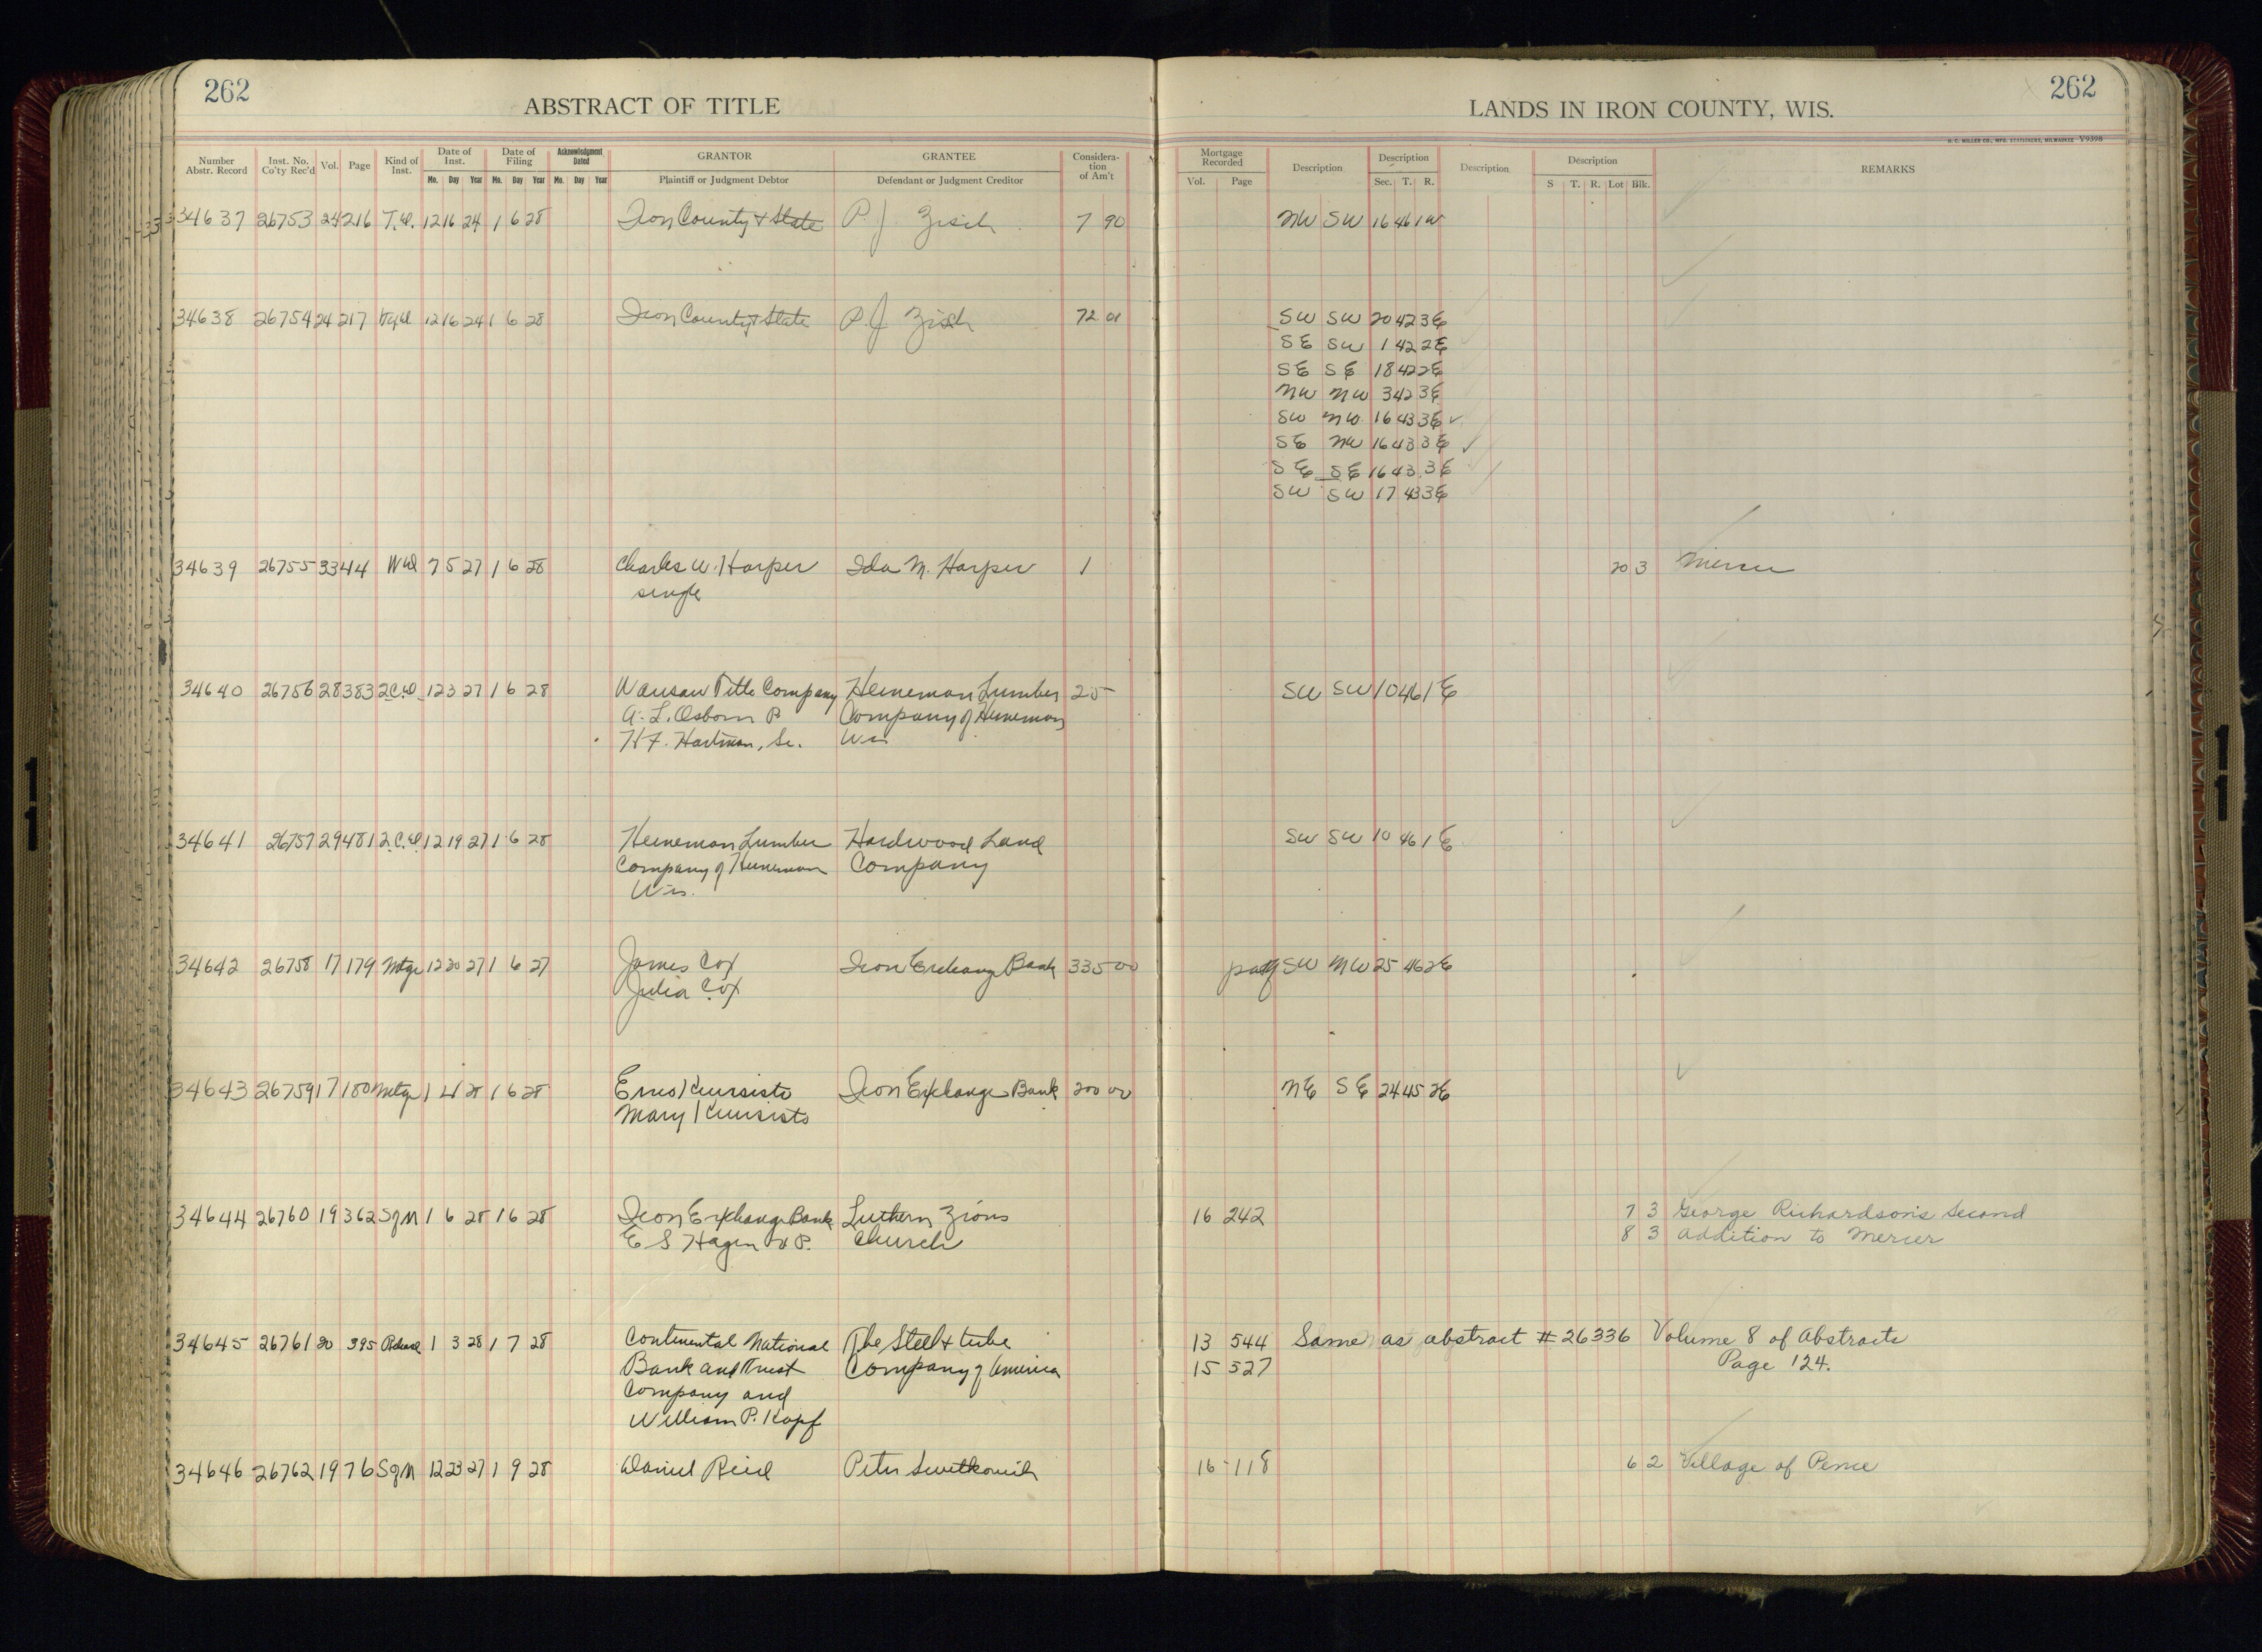 262
262
ABSTRACT OF TITLE
LANDS IN IRON COUNTY, WIS.
H. C. MILLER CO., MFG. STATIONERS, MILWAUKEE V9398
Number Abstr. Record Inst. No. Co'ty Rec'd Vol. Page Kind of Inst. Date of Inst. Mo. Day Year Date of Filing Mo. Day Year Acknowledgment Dated Mo. Day Year GRANTOR Plaintiff or Judgment Debtor GRANTEE Defendant or Judgment Creditor Considera-tion of Am't
Mortgage Recorded Vol. Page Description Description Sec. T. R. Description Description S T. R. Lot Blk. REMARKS
34637 26753 24 216 T.D. 12 16 24 1 6 28 Iron County & State P. J. Zisch 7 90 NW SW 16 46 1W
34638 26754 24 217 12 16 24 1 6 28 Iron County & State P. J. Zisch 72 01 SW SW 20 42 3E
SE SW 1 42 2E
SE SE 18 42 2E
NW NW 3 42 3E
SW NW 16 43 3E ✓
SE NW 16 43 3E ✓
SE SE 16 43 3E
SW SW 17 43 3E
34639 26755 33 44 WD 7 5 27 1 6 28 Charles W. Harper Ida M. Harper 1 20 3 Mercer
single
34640 26756 28 383 2.C.D. 12 3 27 1 6 28 Wausau Title Company Heineman Lumber 25 - SW SW 10 46 1E
A. L. Osborn P. Company of Heineman
H. F. Hartman, Se. Wis
34641 26757 29 481 2.C.D. 12 19 27 1 6 28 Heineman Lumber Hardwood Land SW SW 10 46 1E
Company of Heineman Company
Wis.
34642 26758 17 179 Mtge 12 20 27 1 6 27 James Cox Iron Exchange Bank 335 00 SW NW 25 46 2E
Julia Cox
34643 26759 17 180 Mtge 1 4 28 1 6 28 Iron Exchange Bank 200 00 NE SE 24 45 2E
Mary
34644 26760 19 362 SgM 1 6 28 1 6 28 Iron Exchange Bank Luthern Zions 16 242 7 3 George Richardson's Second
E S Hagen V P. Church 8 3 Addition to Mercer
34645 26761 20 395 Release 1 3 28 1 7 28 Continental National The Steel & tube 13 544 Same as abstract # 26336 Volume 8 of Abstracts
Bank and Trust Company of America 15 527 Page 124.
Company and
William P. Kopf
34646 26762 19 76 SgM 12 23 27 1 9 28 Daniel Reid Peter 16 - 118 6 2 Village of Pence